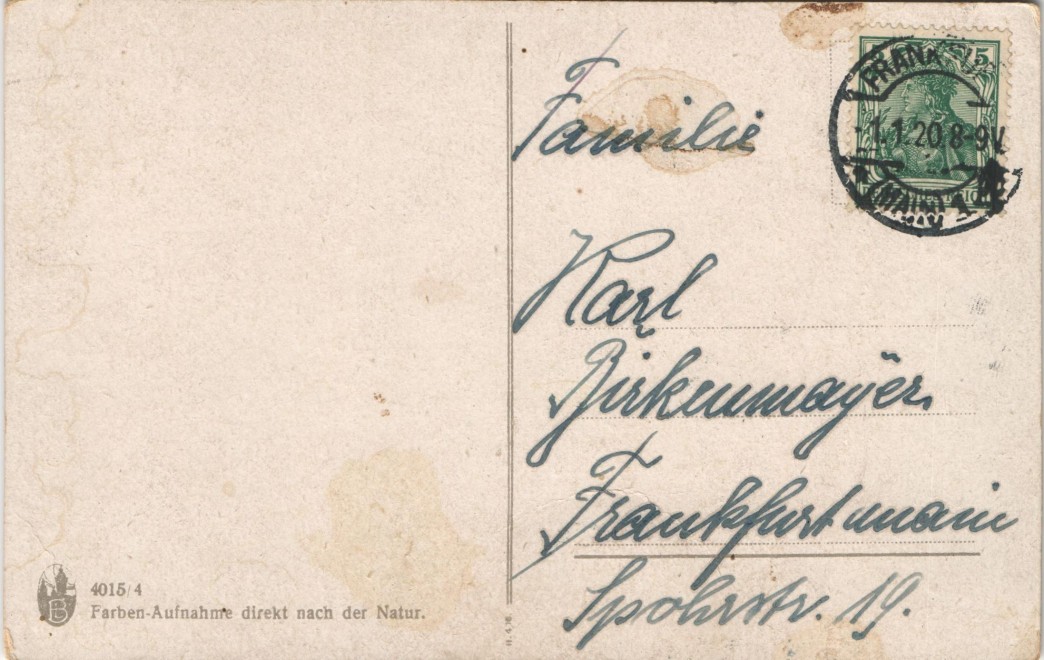 Familie
Karl
Birkenmayer
Frankfurt main
Spohrstr. 19.
5
FRANKFURT
-1.1.20.8-9V
(MAIN) 1
4015/4
Farben-Aufnahme direkt nach der Natur.